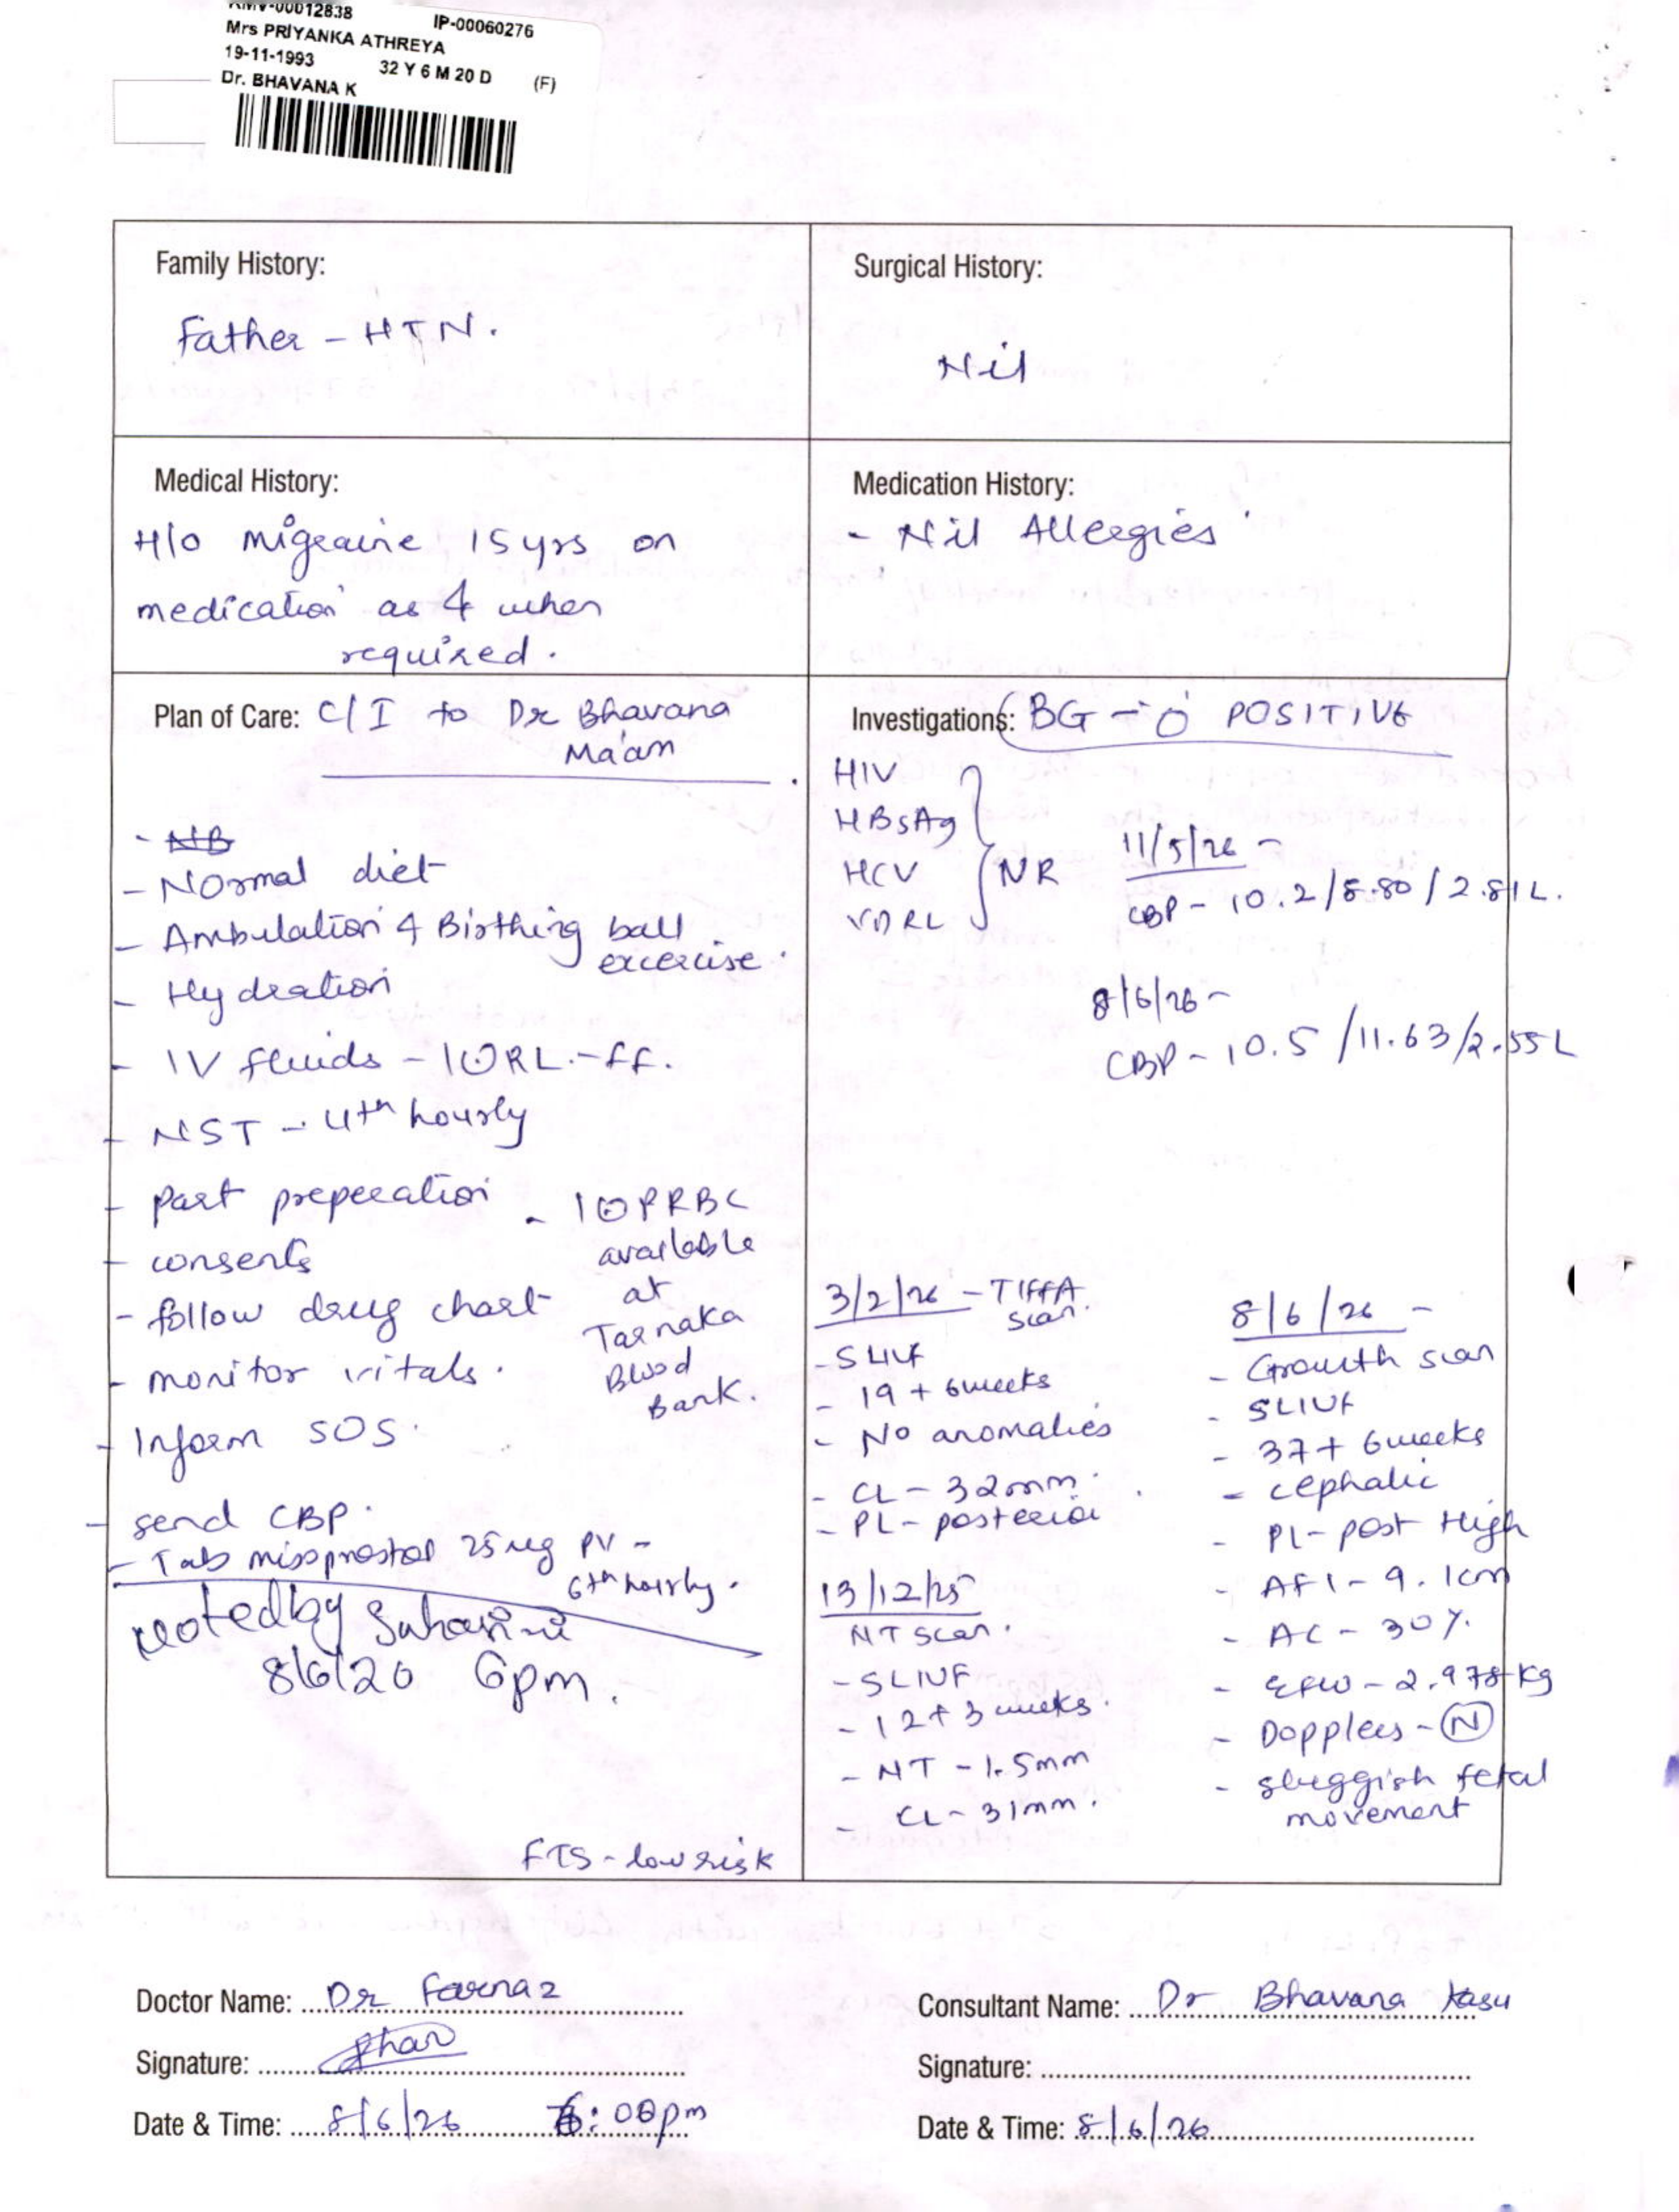 RMV-00012838 IP-00060276
Mrs PRIYANKA ATHREYA
19-11-1993 32 Y 6 M 20 D (F)
Dr. BHAVANA K
Family History:
Father - HTN.
Surgical History:
Nil
Medical History:
H/o migraine 15 yrs on
medication as & when
required.
Medication History:
- Nil Allergies
Plan of Care: C/I to Dr Bhavana
Ma'am
- NB
- Normal diet
- Ambulation & Birthing ball
excercise.
- Hydration
- IV fluids - 1 U RL - ff.
- NST - 4th hourly
- Part preperation
- consents
- follow drug chart
- monitor vitals.
- Inform SOS.
- send CBP.
- Tab misoprostol 25 mg PV -
6th hourly.
- 1 U PRBC
available
at
Tarnaka
Blood
Bank.
Noted by Suhasini
8/6/26 6pm.
FTS - low risk
Investigations: BG - O POSITIVE
HIV
HBsAg
HCV
VDRL
NR
11/5/26 -
CBP - 10.2/8.80/2.81L.
8/6/26 -
CBP - 10.5/11.63/2.55L
3/2/26 - TIFFA
scan.
- SLIUF
- 19 + 6 weeks
- No anomalies
- CL - 32mm.
- PL - posterior
13/12/25
NT scan.
- SLIUF
- 12 + 3 weeks.
- NT - 1.5mm
- CL - 31mm.
8/6/26 -
- Growth scan
- SLIUF
- 37 + 6 weeks
- cephalic
- Pl - post High
- AFI - 9.1cm
- AC - 30%.
- EFW - 2.978 kg
- Dopplers - N
- sluggish fetal
movement
Doctor Name: Dr Farnaz
Signature:
Date & Time: 8/6/26 6:00pm
Consultant Name: Dr Bhavana Kasu
Signature:
Date & Time: 8/6/26